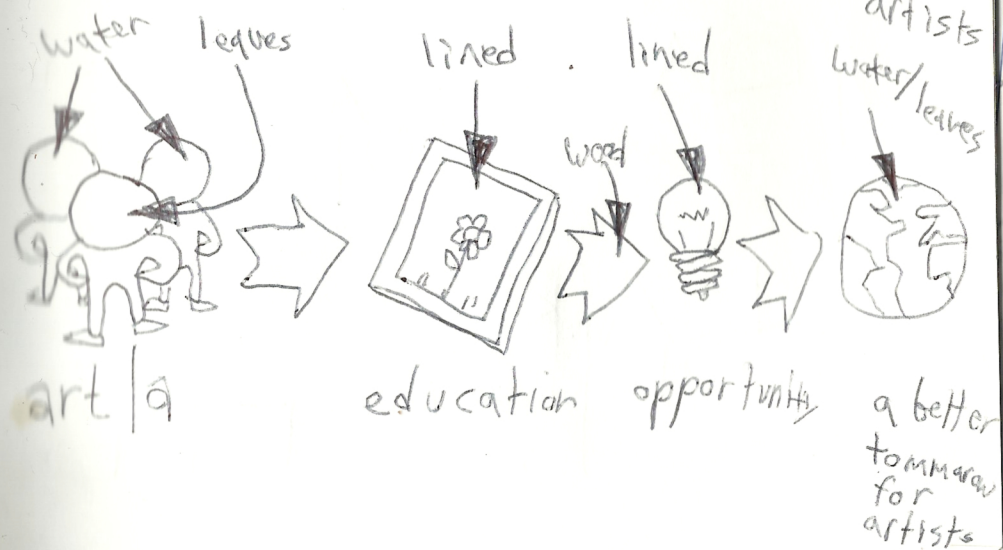 artists
water
leaves
lined . lined
water/leaves
wood
art | a
education
opportunity
a better
tommarow
for
artists